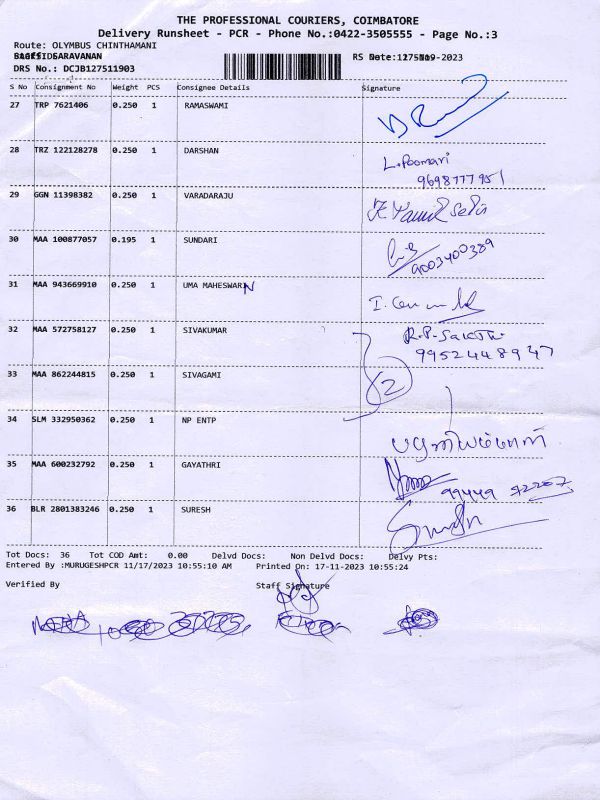 THE PROFESSIONAL COURIERS, COIMBATORE
Delivery Runsheet - PCR - Phone No.:0422-3505555 - Page No.:3
Route: OLYMBUS CHINTHAMANI
SARAVANAN
DRS No.: DCJB127511903
S No Consignment No Weight PCS Consignee Details Signature
27 TRP 7621406 0.250 1 RAMASWAMI
28 TRZ 122128278 0.250 1 DARSHAN
L.Poomari
9698777951
29 GGN 11398382 0.250 1 VARADARAJU
30 MAA 100877057 0.195 1 SUNDARI
9003400389
31 MAA 943669910 0.250 1 UMA MAHESWARN
32 MAA 572758127 0.250 1 SIVAKUMAR
R.P. Sakthi
9952448947
33 MAA 862244815 0.250 1 SIVAGAMI
2
34 SLM 332950362 0.250 1 NP ENTP
35 MAA 600232792 0.250 1 GAYATHRI
36 BLR 2801383246 0.250 1 SURESH
Tot Docs: 36 Tot COD Amt: 0.00 Delvd Docs: Non Delvd Docs: Delvy Pts:
Entered By :MURUGESHPCR 11/17/2023 10:55:10 AM Printed On: 17-11-2023 10:55:24
Verified By Staff Signature